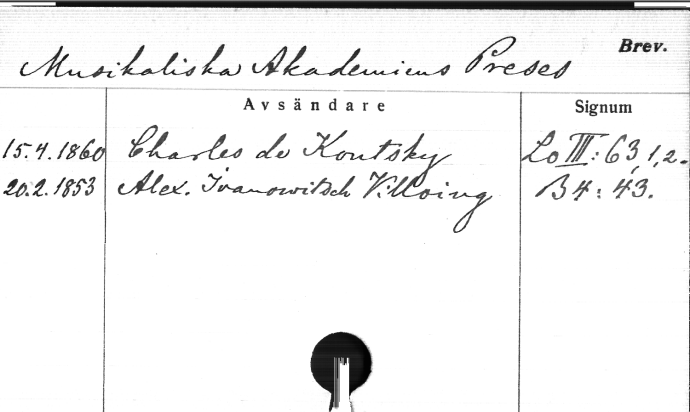 Brev.
Musikaliska Akademiens Preses
Avsändare Signum
15.4.1860 Charles de Kontsky Lo III: 63, 1,2.
20.2.1853 Alex. Ivanowitsch Villoing B 4: 43.